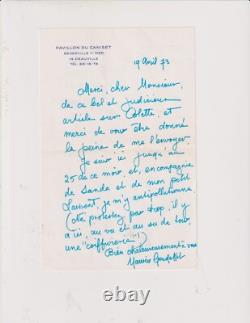 PAVILLON DU CANISET
14 DEAUVILLE
19 Avril 73
Merci, cher Monsieur,
de ce bel et judicieux
article sur Colette, et
merci de vous être donné
la peine de me l'envoyer
je suis ici jusqu'au
25 de ce mois, et, en compagnie
de Sanda et de mon petit
Laurent, je m'y antipollutionne
(ne protestez pas trop, il y
a ici, au vu et au su de tous,
une "coiffurerie"!)
Bien chaleureusement à vous
Maurice Goudeket
© picclick.fr